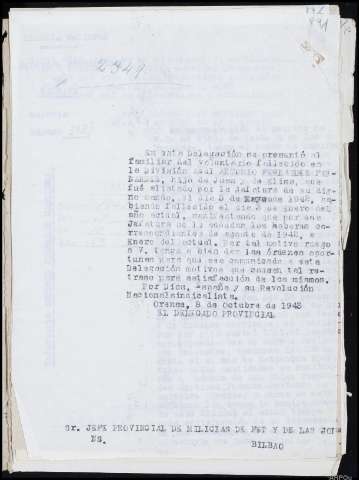 2349
En esta Delegación se presentó el
familiar del voluntario fallecido en
la División Azul ANTONIO FERNANDEZ
hijo de Juan y de Elisa, que
fué alistado por la Jefatura de su dig-
no mando, el dia 5 de Mayo de 1942, ha-
biendo fallecido el dia 3 de Enero del
año actual, manifestando que por esa
Jefatura no le abonan los haberes co-
rrespondientes de Agosto de 1942, a
Enero del actual. Por tal motivo ruego
a V. tenga a bien dar las órdenes opor-
tunas para que sea comunicado a esta
Delegación motivos que causen tal re-
traso para satisfacción de los mismos.
Por Dios, España y su Revolución
Nacionalsindicalista.
Orense, 8 de Octubre de 1943
EL DELEGADO PROVINCIAL
Sr. JEFE PROVINCIAL DE MILICIAS DE FET Y DE LAS JON
NS.
BILBAO